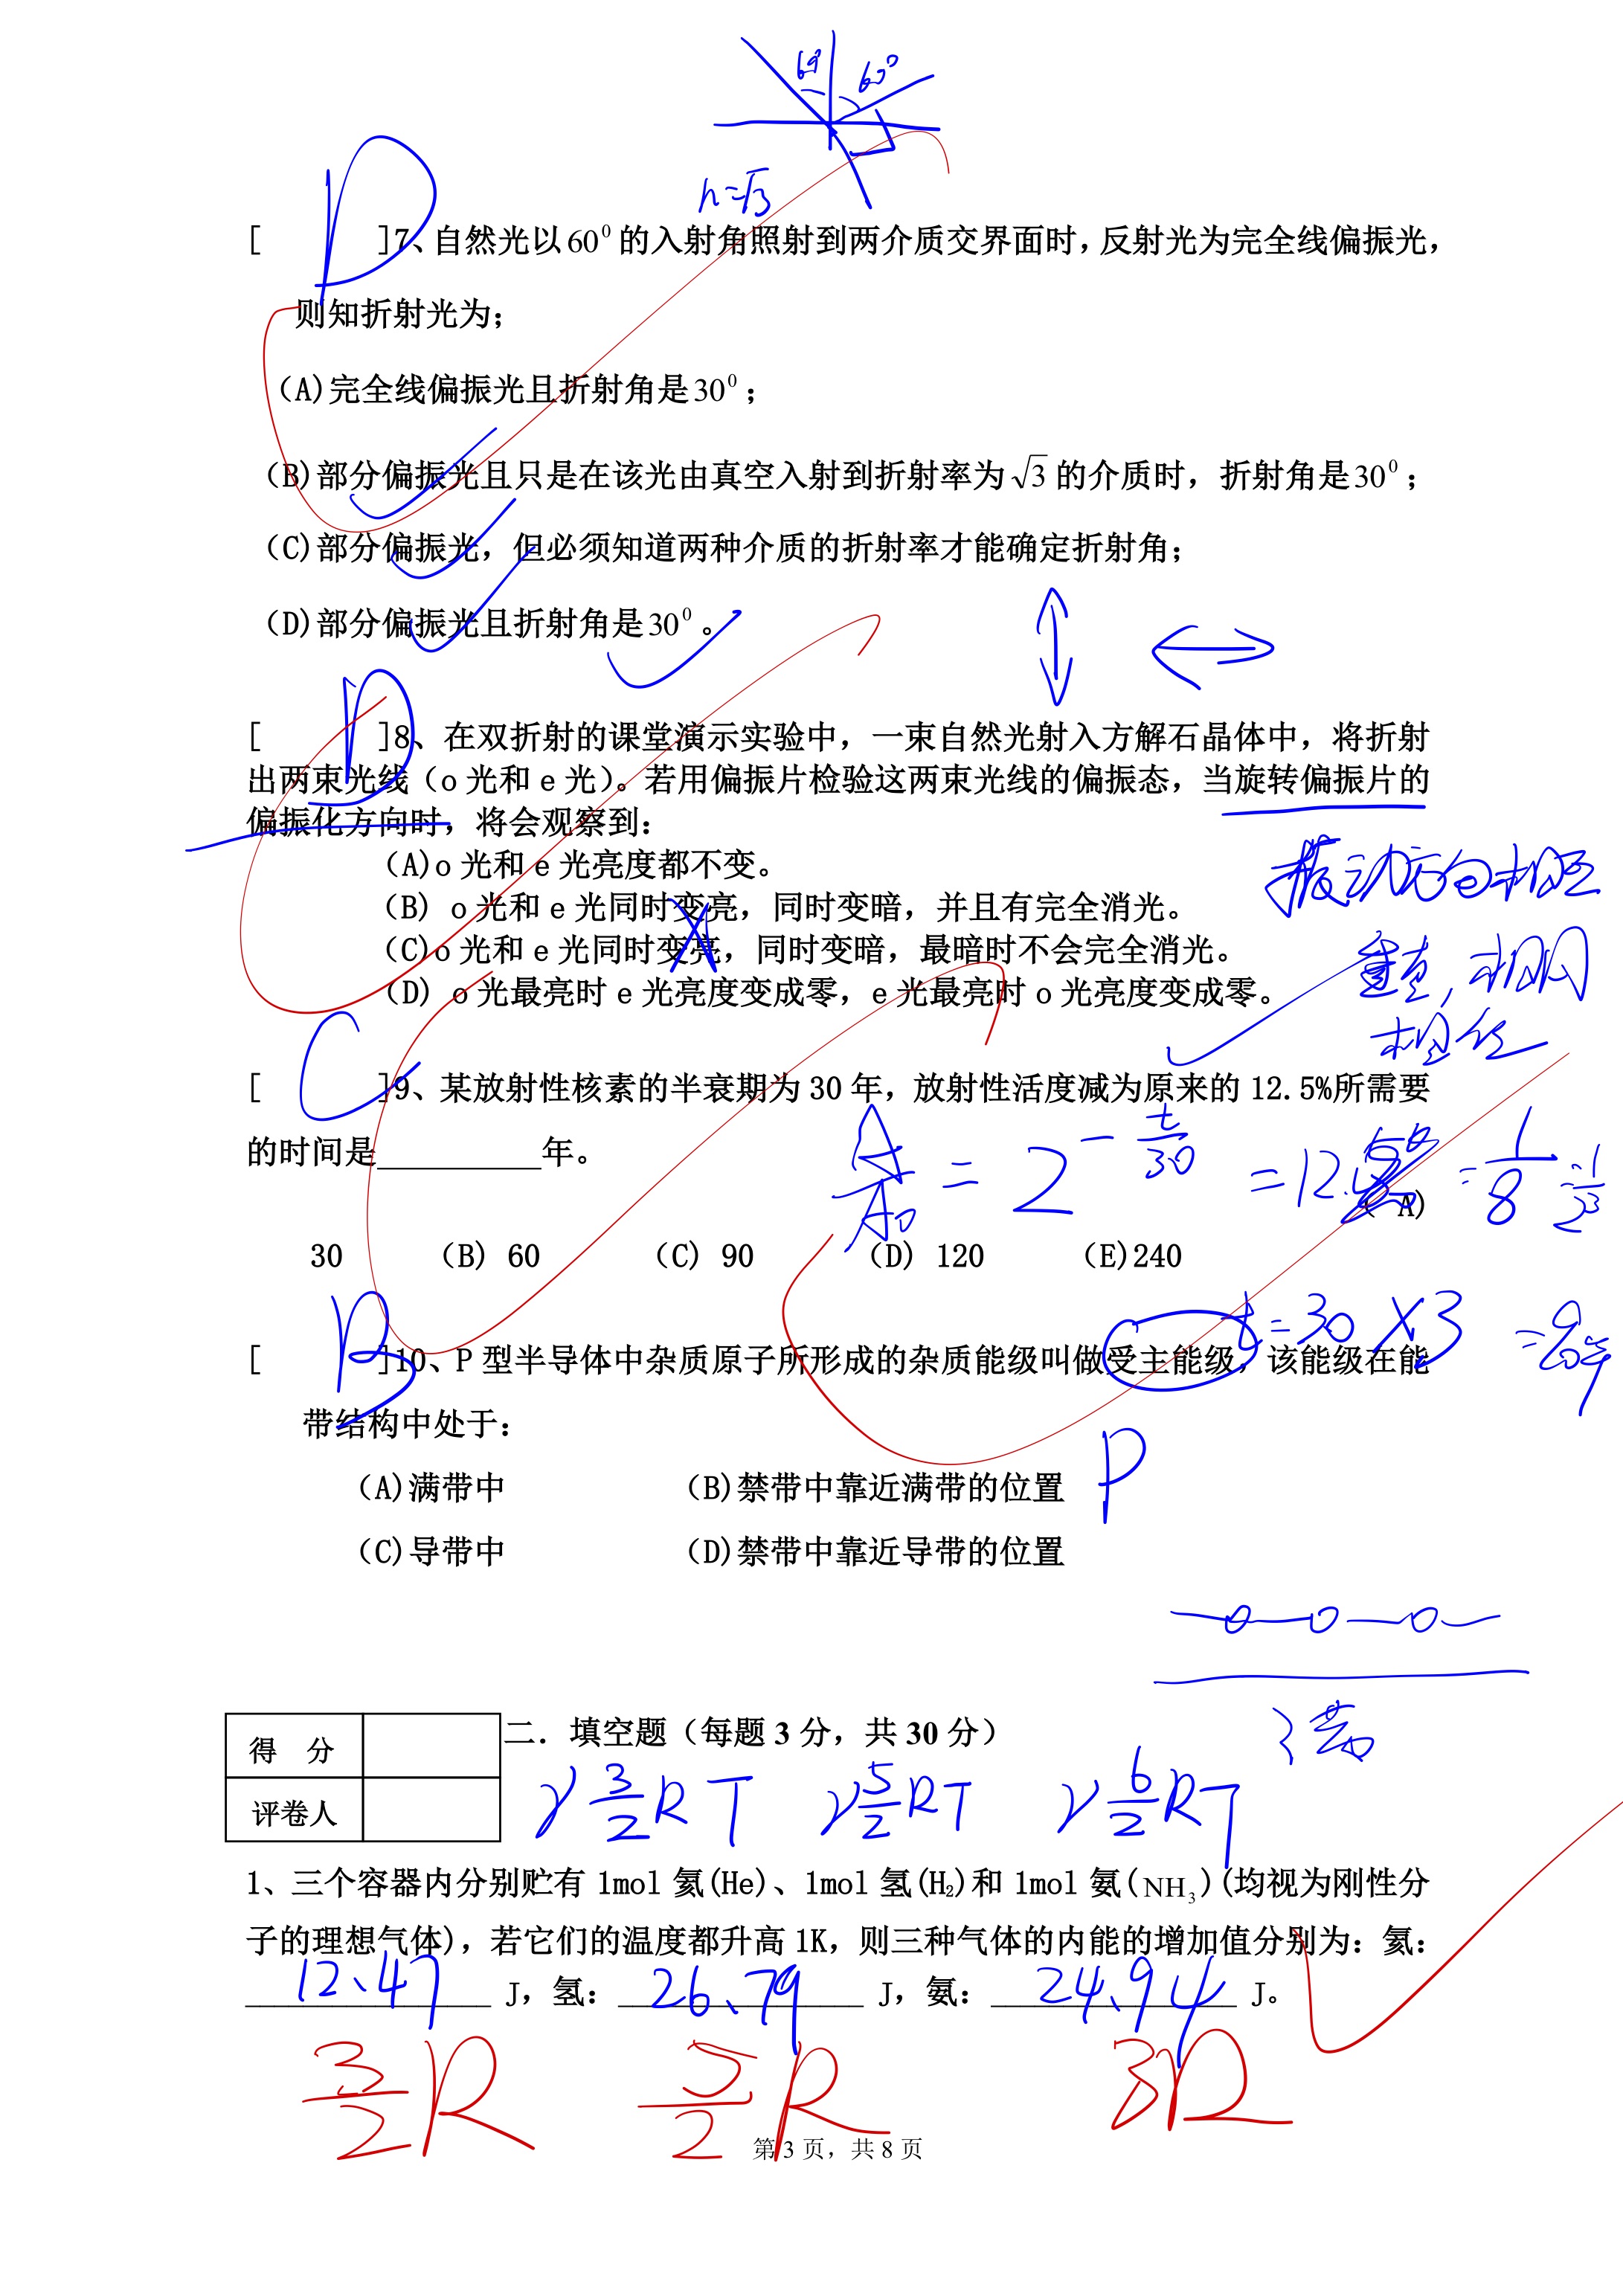 60° 60°
n=√3
D
[ ]7、自然光以60⁰的入射角照射到两介质交界面时，反射光为完全线偏振光，
则知折射光为；
(A)完全线偏振光且折射角是30⁰；
(B)部分偏振光且只是在该光由真空入射到折射率为√3的介质时，折射角是30⁰；
(C)部分偏振光，但必须知道两种介质的折射率才能确定折射角；
(D)部分偏振光且折射角是30⁰。
D
[ ]8、在双折射的课堂演示实验中，一束自然光射入方解石晶体中，将折射
出两束光线（o 光和 e 光）。若用偏振片检验这两束光线的偏振态，当旋转偏振片的
偏振化方向时，将会观察到：
(A)o 光和 e 光亮度都不变。
(B) o 光和 e 光同时变亮，同时变暗，并且有完全消光。
(C)o 光和 e 光同时变亮，同时变暗，最暗时不会完全消光。
(D) o 光最亮时 e 光亮度变成零，e 光最亮时 o 光亮度变成零。
振动方向相互
垂直，
C
[ ]9、某放射性核素的半衰期为 30 年，放射性活度减为原来的 12.5%所需要
的时间是__________年。
(A)
A/A₀ = 2^(-t/30) = 1/8 = 1/2³
30 (B) 60 (C) 90 (D) 120 (E)240
t=30×3
B
[ ]10、P 型半导体中杂质原子所形成的杂质能级叫做受主能级，该能级在能
带结构中处于：
(A)满带中 (B)禁带中靠近满带的位置
P
(C)导带中 (D)禁带中靠近导带的位置
得 分
评卷人
二．填空题（每题 3 分，共 30 分）
ν 3/2 RT ν 5/2 RT ν 6/2 RT
1、三个容器内分别贮有 1mol 氦(He)、1mol 氢(H₂)和 1mol 氨(NH₃)(均视为刚性分
子的理想气体)，若它们的温度都升高 1K，则三种气体的内能的增加值分别为：氦：
12.47 J，氢：26.79 J，氨：24.94 J。
3/2 R 5/2 R 3R
第 3 页，共 8 页